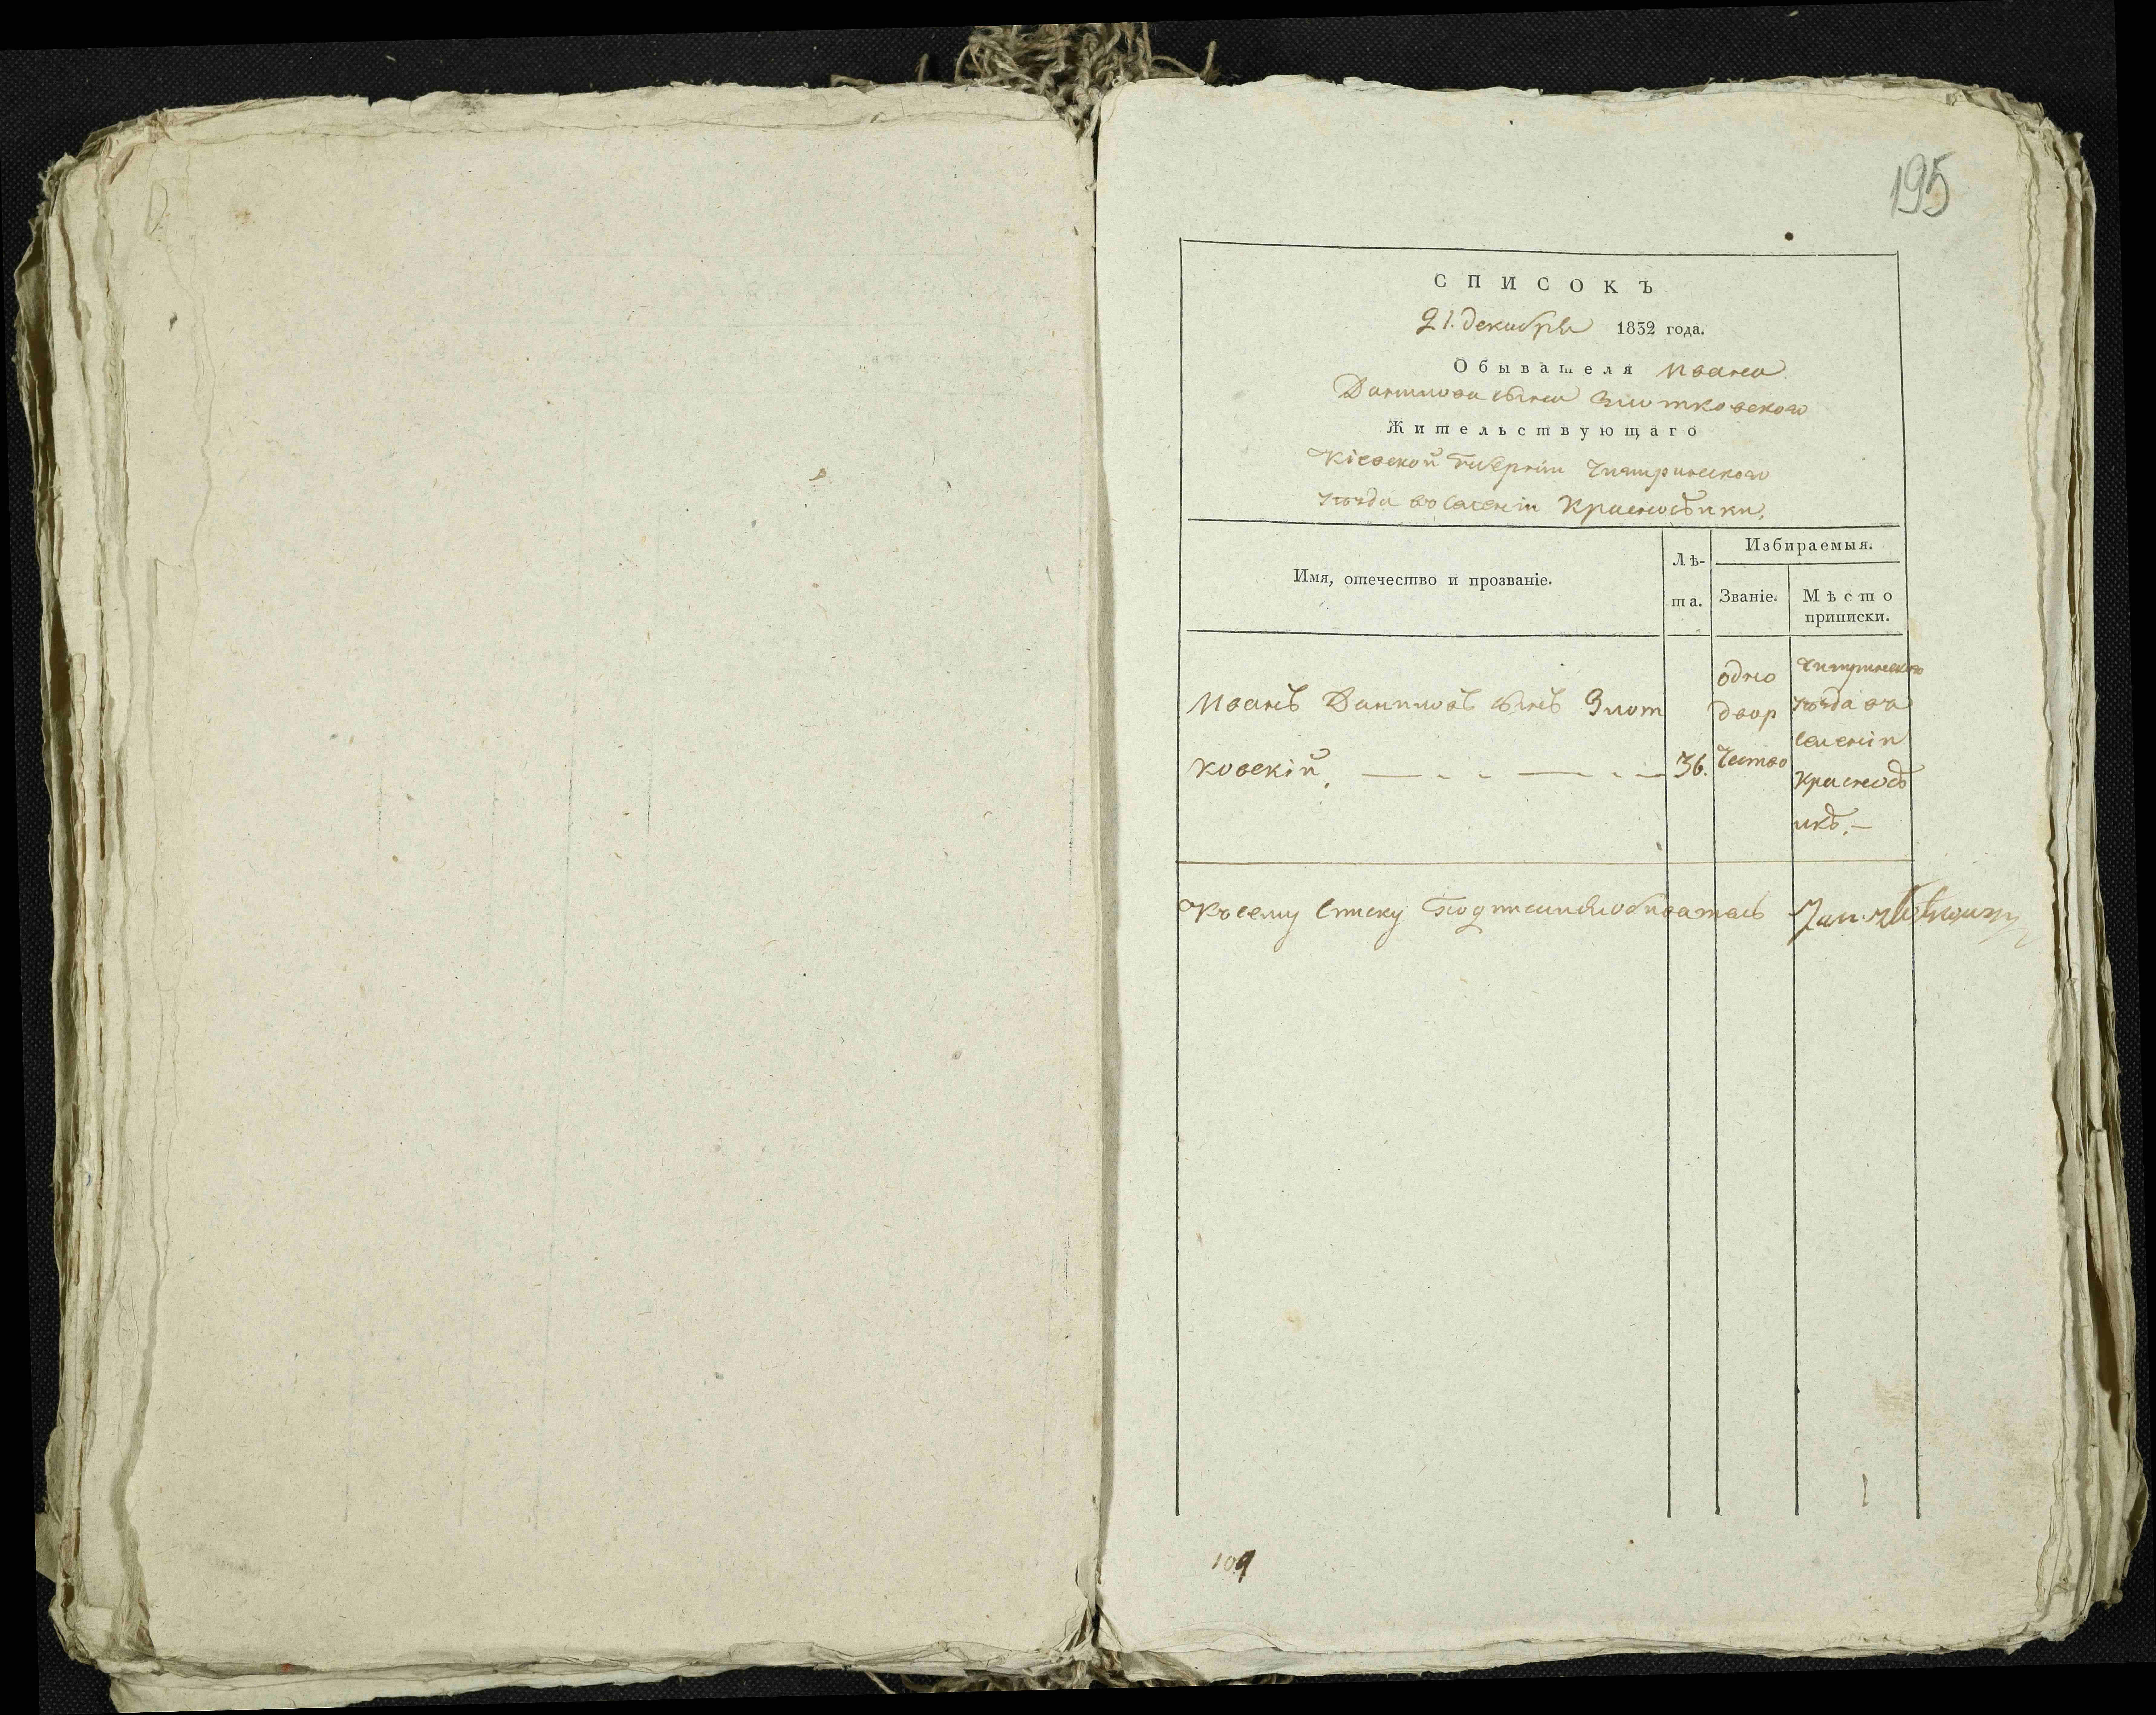 195
СПИСОКЪ
21. декабря 1832 года.
Обывателя Ивана
Данилова сына Злотковского
Жительствующаго
Кіевской Губерніи Чигиринского
уѣзда въ селеніи Красносѣлки,
Имя, отечество и прозваніе.
Лѣ-
та.
Избираемыя.
Званіе.
Мѣсто
приписки.
Иванъ Даниловъ сынъ Злот
ковскій, 36.
одно
двор
чество
Чигиринского
уѣзда въ
селеніи
Красносѣ
лкѣ. —
Къ сему списку подписался обыватель Jan
109